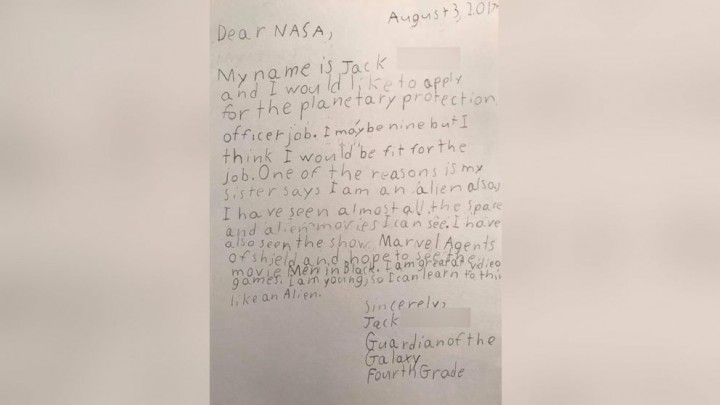 August 3, 2017
Dear NASA,
My name is Jack
and I would like to apply
for the planetary protection
officer job. I may be nine but I
think I would be fit for the
job. One of the reasons is my
sister says I am an alien also,
I have seen almost all the space
and alien movies I can see. I have
also seen the show Marvel Agents
of shield and hope to see the
movie Men in Black. I am great at vdieo
games. I am young, so I can learn to thin
like an Alien.
Sincerely,
Jack
Guardian of the
Galaxy
Fourth Grade